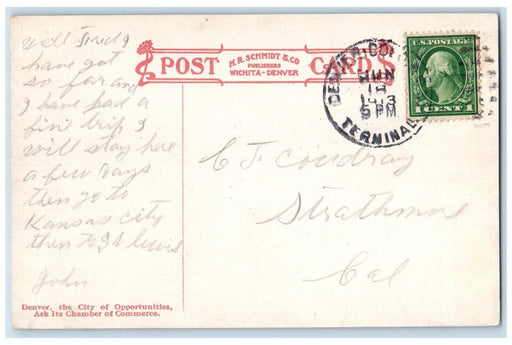 POST CARDS
H. R. SCHMIDT & CO
PUBLISHERS
WICHITA - DENVER
DENVER, COLO.
JUN
18
1913
5 PM
TERMINAL
U.S. POSTAGE
1 CENT 1
Well Fred I
have got
so far and
I have had a
fine trip I
will stay here
a few days
then go to
Kansas City
then to St Lewis
John
C F Coudray
Strathmore
Cal
Denver, the City of Opportunities,
Ask Its Chamber of Commerce.